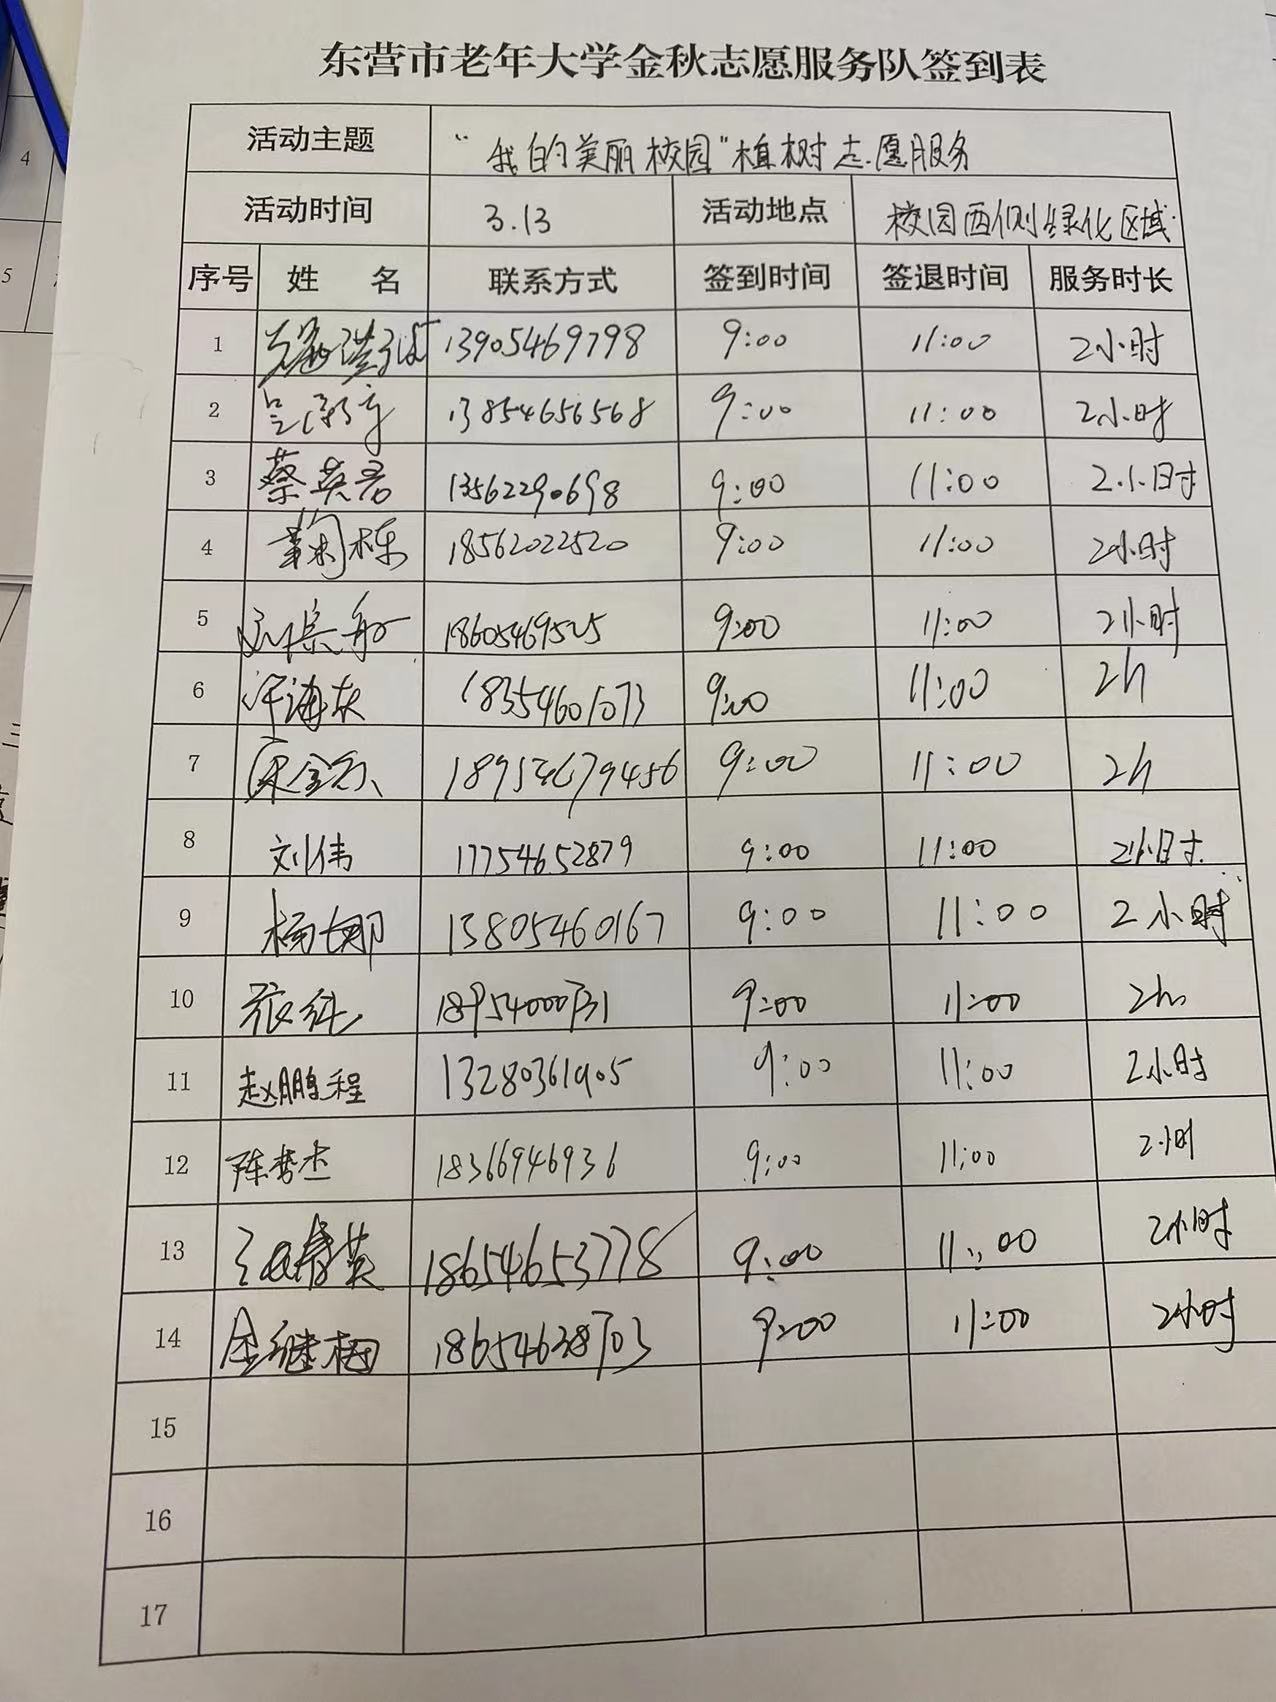 东营市老年大学金秋志愿服务队签到表
活动主题 “我的美丽校园”植树志愿服务
活动时间 3.13 活动地点 校园西侧绿化区域
序号 姓名 联系方式 签到时间 签退时间 服务时长
1 13905469798 9:00 11:00 2小时
2 13854656568 9:00 11:00 2小时
3 蔡英君 13562290698 9:00 11:00 2小时
4 鞠栋 18562022520 9:00 11:00 2小时
5 9:00 11:00 2小时
6 18354601073 9:00 11:00 2h
7 9:00 11:00 2h
8 刘伟 17754652879 9:00 11:00 2小时
9 杨娜 13805460167 9:00 11:00 2小时
10 18954000731 9:00 11:00 2h
11 赵鹏程 13280361905 9:00 11:00 2小时
12 陈梦杰 18366946936 9:00 11:00 2小时
13 18654653778 9:00 11:00 2小时
14 金继梅 18654638703 9:00 11:00 2小时
15
16
17
4
5